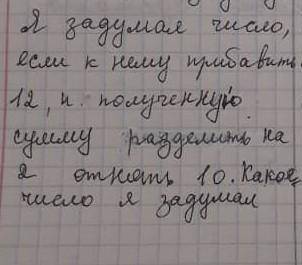 Я задумал число,
если к нему прибавить
12, и полученную
сумму разделить на
2 отнять 10. Какое
число я задумал